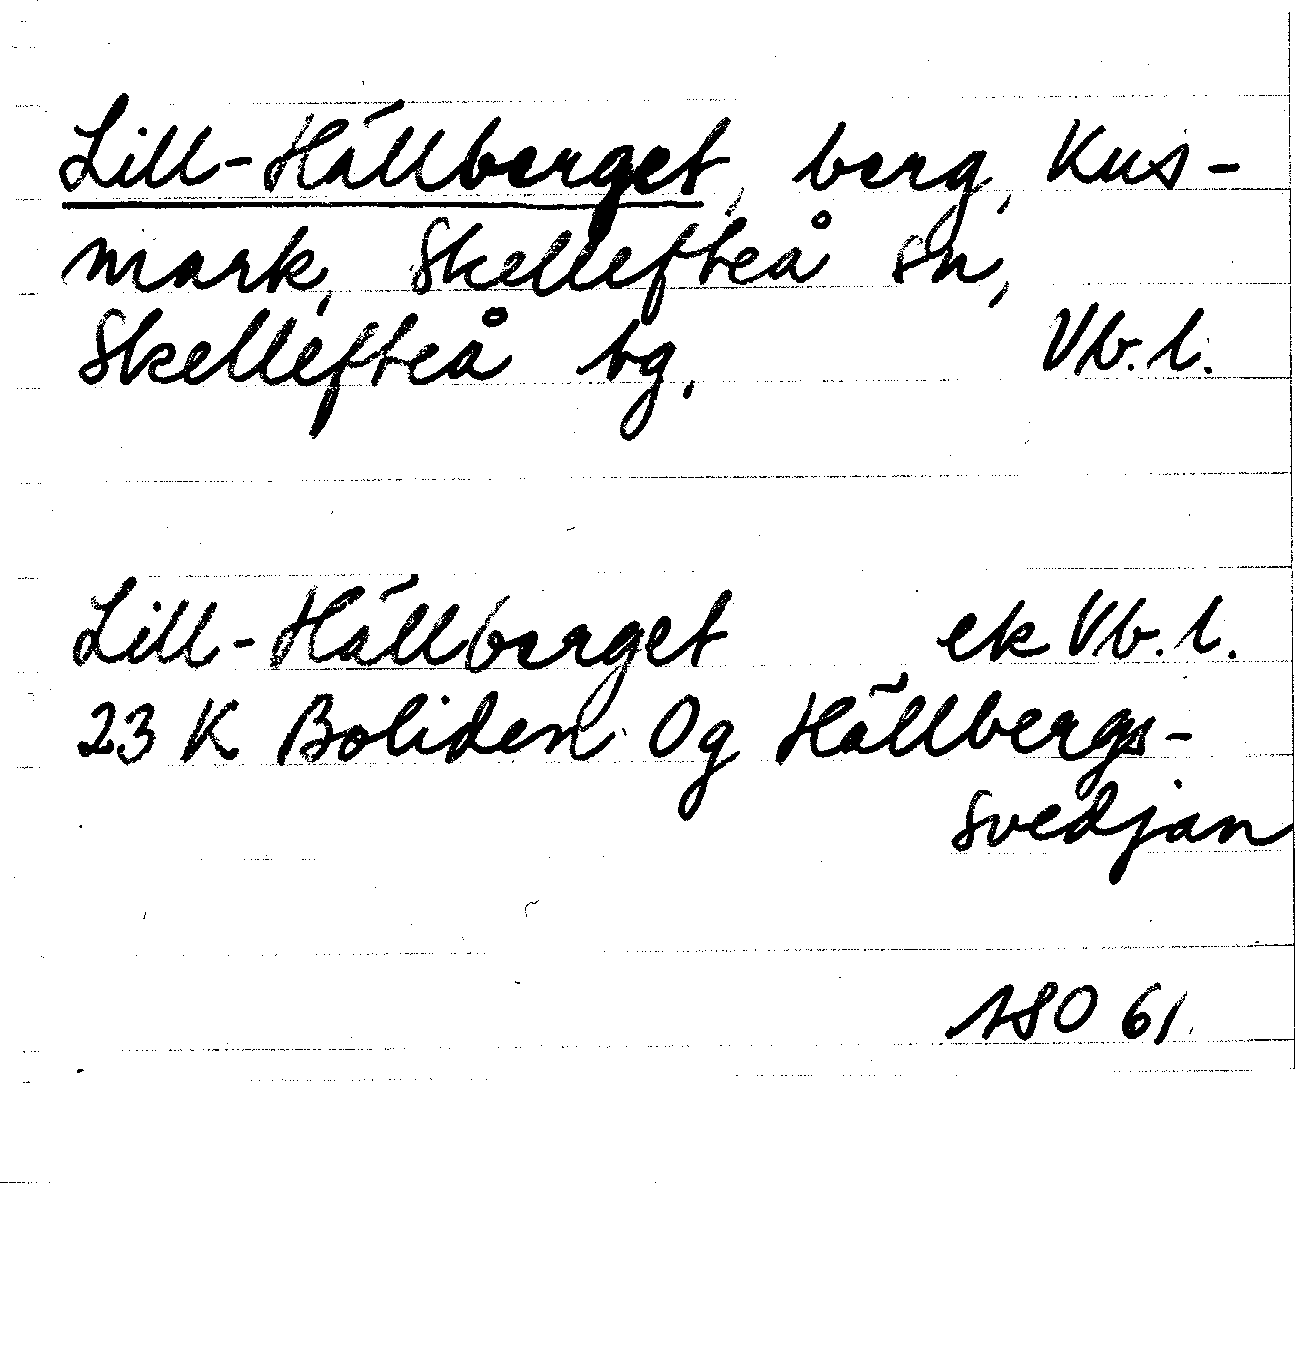 Lill-Hällberget, berg, Kus-
mark, Skellefteå sn,
Skellefteå tg. Vb. l.
Lill-Hällberget ek Vb. l.
23 K Boliden Og Hällbergs-
svedjan
ASO 61